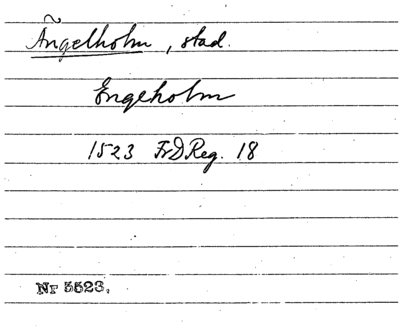 Ängelholm, stad.
Engeholm
1523 FrDReg. 18
Nr 5523.